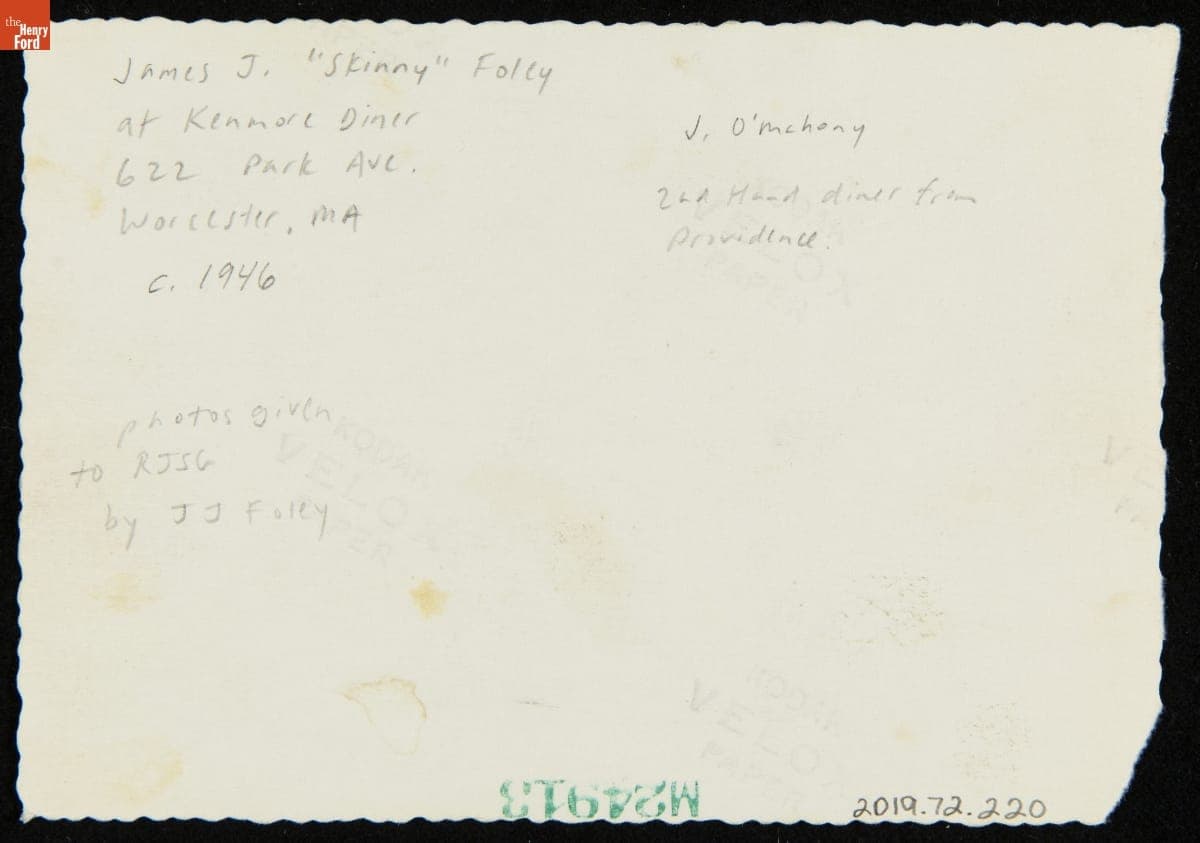 the
Henry
Ford
James J. "Skinny" Foley
at Kenmore Diner
622 Park Ave.
Worcester, MA
c. 1946
J. O'Mahony
2nd Hand diner from
Providence.
photos given
to RJSG
by JJ Foley
KODAK
VELOX
PAPER
VELOX
PAPER
KODAK
VELOX
M24913
2019.72.220